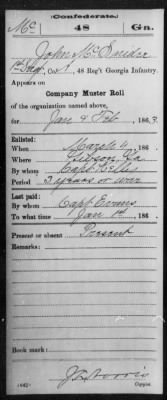 (Confederate.)
Mc 48 Ga.
John McSnider
Co. , 48 Reg't Georgia Infantry.
Appears on
Company Muster Roll
of the organization named above,
for Jan & Feb , 186
Enlisted:
When March 4 , 186
Where Gibson Ga
By whom Capt Kelly
Period 3 years or war
Last paid:
By whom Capt Evans
To what time Jan 1st , 186
Present or absent Present
Remarks:
Book mark:
(642) Copyist.